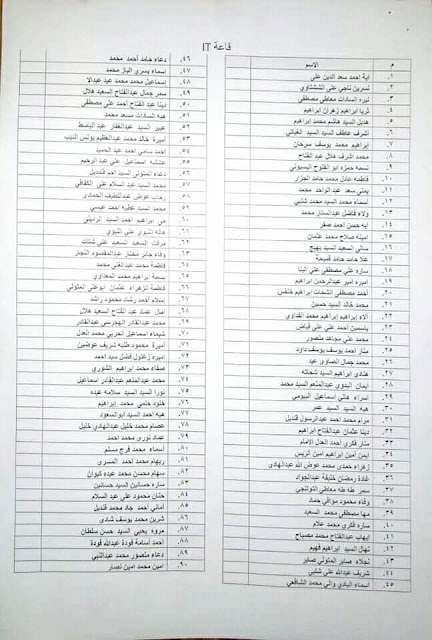 قاعة IT
م الاسم
١. اية احمد سعد الدين على
٢. نسرين ناجي على الششتاوي
٣. نيره السادات معاطي مصطفى
٤. ثريا ابراهيم زهران ابراهيم
٥. هديل السيد هاشم محمد ابراهيم
٦. اشرف عاطف السيد السيد الغياتى
٧. ابراهيم محمد يوسف سرحان
٨. محمد اشرف هلال عبد الفتاح
٩. نسمه حمزه ابو الفتوح البسيوني
١٠. فاطمه عادل محمد حامد الجزار
١١. يمنى سعد عبد الواحد محمد
١٢. اسماء محمد السيد محمد شتيي
١٣. ولاء فاضل عبدالستار محمد
١٤. ايه حسن احمد صقر
١٥. امينه صلاح محمد عثمان
١٦. سالي السعيد السيد بهيج
١٧. علا حامد حامد قميحة
١٨. ساره على مصطفى على البنا
١٩. اميره امير عبدالرحمن ابراهيم
٢٠. احمد مصطفى الشحات ابراهيم
٢١. محمد خالد السيد حسين
٢٢. الاء ابراهيم ابراهيم محمد القناوى
٢٣. ياسمين احمد علي علي فياض
٢٤. محمد على مجاهد منصور
٢٥. منار احمد يوسف يوسف داود
٢٦. محمد جمال الصاوى عيد
٢٧. هنادى ابراهيم السيد شحاته
٢٨. ايمان البدوي عبدالمنعم السيد محمد
٢٩. اسراء هاني اسماعيل البيومى
٣٠. هبه السيد السيد عمر
٣١. مرام محمد احمد عبدالرسول قنديل
٣٢. دينا عثمان عبدالفتاح ابراهيم
٣٣. منار فكري أحمد العدل الامام
٣٤. ايمن أمين ابراهيم امين الريس
٣٥. زهراء حمدى محمد عوض الله عبدالهادى
٣٦. غادة رمضان خليفة عبدالجواد
٣٧. سمر طه طه معاطي
٣٨. وفاء محمود موافى حماد
٣٩. مها مصطفى محمد السعيد
٤٠. ساره فكري محمد علام
٤١. ايهاب عبدالفتاح محمد مصباح
٤٢. نهال السيد ابراهيم فهيم
٤٣. نجلاء صابر المتولي صابر
٤٤. شريف عبدالله علي شلبى
٤٥. أسماء البادي والي محمد الشافعي
٤٦. دعاء حامد أحمد محمد
٤٧. اسماء يسري الباز محمد
٤٨. إسماعيل محمد محمد عبد عبدالا
٤٩. سمر جمال عبدالفتاح السعيد هلال
٥٠. دينا عبد الفتاح أحمد علي مصطفي
٥١. هبه السادات مسعد محمد
٥٢. عبير السيد عبدالغفار عبد الباسط
٥٣. أميرة خالد محمد عبدالعظيم يونس
٥٤. احمد سامي احمد عبد الحميد
٥٥. عائشه اسماعيل على عبد الرحيم
٥٦. دعاء المتولي السيد احمد قنديل
٥٧. محمد السيد عبد السلام على الكفافي
٥٨. رحاب عوض عبداللطيف الحمادى
٥٩. محمد السيد عطيه احمد عيسي
٦٠. مى ابراهيم احمد السيد
٦١. هاله النبوى على النبوى
٦٢. مرفت السعيد السعيد على شتات
٦٣. وفاء جابر مختار عبدالمقصود النجار
٦٤. فاطمة محمد عبدالغنى محمد
٦٥. بسمة ابراهيم محمد المعداوى
٦٦. فاطمة الزهراء عثمان ابو المتولى
٦٧. اسلام أحمد رشاد محمود رشاد
٦٨. امال عماد عبد الفتاح السعيد هلال
٦٩. محمد عبدالقادر عبدالقادر
٧٠. شيماء اسماعيل العربي محمد العدل
٧١. أميرة محمود طلبه شريف عوضين
٧٢. اميره زغلول فضل سيد احمد
٧٣. صفاء محمد ابراهيم الشورى
٧٤. محمد عبدالمنعم عبدالقادر اسماعيل
٧٥. نورا السيد السيد سلامه عبده
٧٦. خلود حلمي محمد إبراهيم
٧٧. هبه احمد السيد ابوالسعود
٧٨. عصام محمد خليل عبدالهادي خليل
٧٩. عماد نورى محمد احمد
٨٠. أسماء محمد فرج مسلم
٨١. ريهام محمد احمد المسرى
٨٢. إيمان محسن محمد عبده
٨٣. ساره حسانين السيد حسانين
٨٤. حنان محمود علي عبد السلام
٨٥. أماني أحمد جاد محمد قنديل
٨٦. شرين محمد يوسف شادى
٨٧. مروه يحيي السيد حسن سلطان
٨٨. أحمد أسامة فودة عبدالله فودة
٨٩. دعاء منصور محمد عبدالنبي
٩٠. امين محمد امين نصار